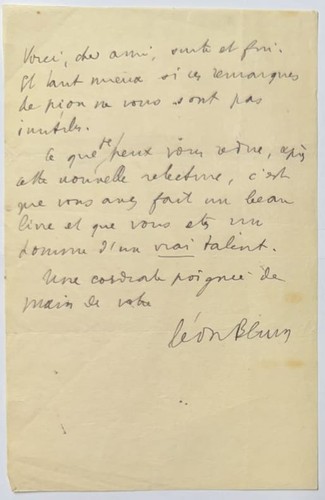 Voici, cher ami, suite et fin.
Et tant mieux si ces remarques
de pion ne vous sont pas
inutiles.
Ce que je peux vous redire, après
cette nouvelle relecture, c'est
que vous avez fait un beau
livre et que vous etes un
homme d'un vrai talent.
Une cordiale poignée de
main de votre
Léon Blum